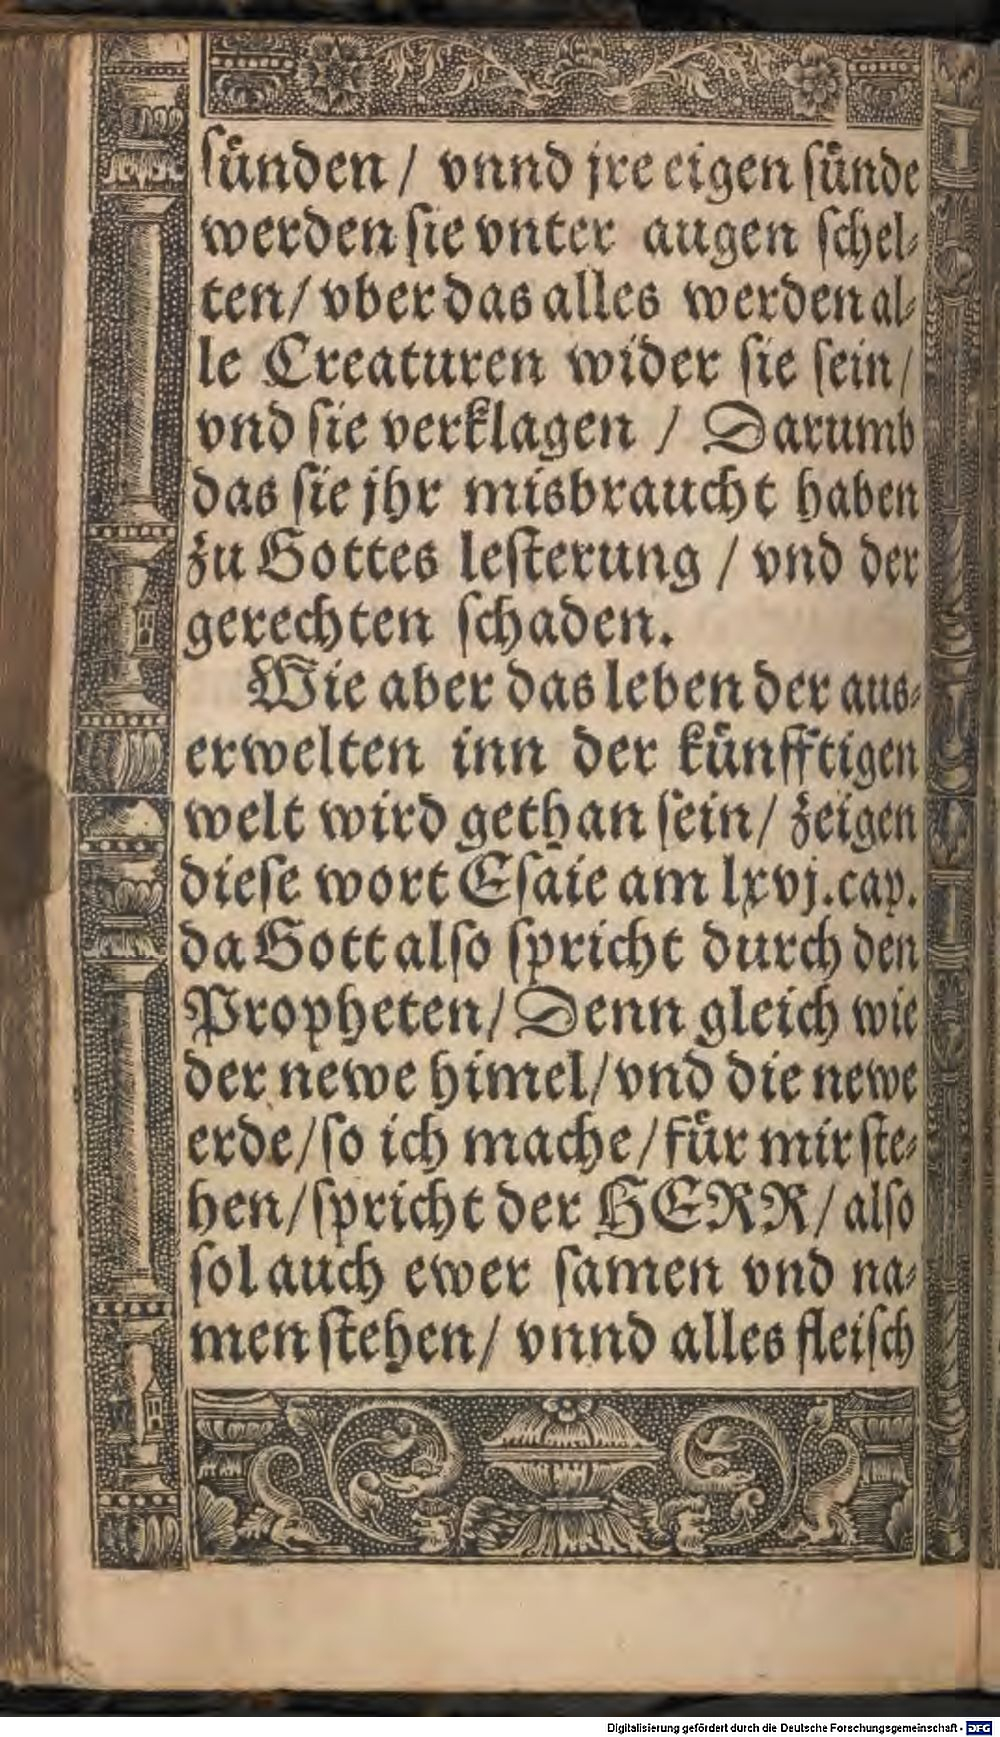 ſuͤnden / vnnd jre eigen ſuͤnde
werden ſie vnter augen ſchel⸗
ten / vber das alles werden al⸗
le Creaturen wider ſie ſein /
vnd ſie verklagen / Darumb
das ſie jhr misbraucht haben
zu Gottes leſterung / vnd der
gerechten ſchaden.
Wie aber das leben der aus⸗
erwelten inn der kuͤnfftigen
welt wird gethan ſein / zeigen
dieſe wort Eſaie am lxvj. cap.
da Gott alſo ſpricht durch den
Propheten / Denn gleich wie
der newe himel / vnd die newe
erde / ſo ich mache / fuͤr mir ſte⸗
hen / ſpricht der HERR / alſo
ſol auch ewer ſamen vnd na⸗
men ſtehen / vnnd alles fleiſch
Digitalisierung gefördert durch die Deutsche Forschungsgemeinschaft - DFG